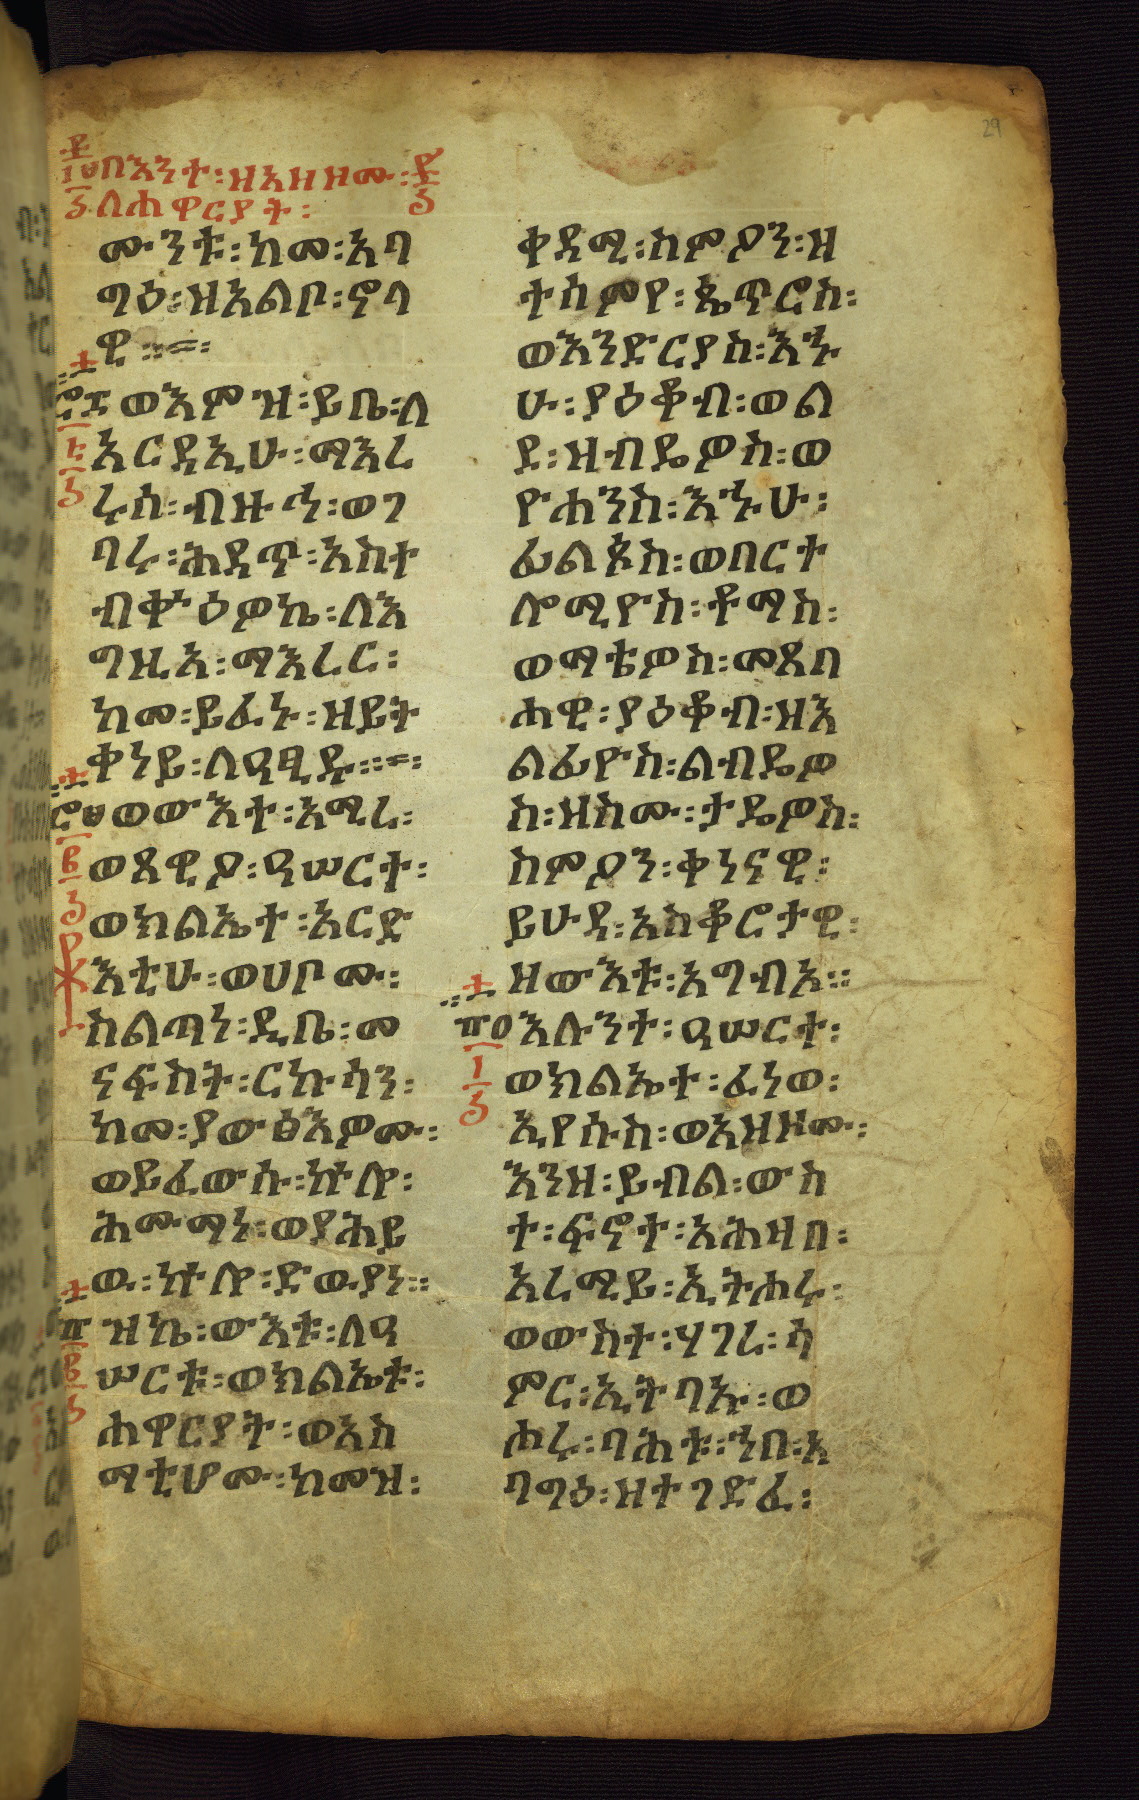 29
፲፱ በእንተ፡ዘአዘዞሙ፡
ለሐዋርያት፡
ሙንቱ፡ከመ፡አባ
ግዕ፡ዘአልቦ፡ኖላ
ዊ።
ወእምዝ፡ይቤ፡ለ
አርዳኢሁ፡ማእረ
ሩሰ፡ብዙኅ፡ወገ
ባሩ፡ሕዳጥ፡አስተ
ብቍዕዎኬ፡ለእ
ግዚአ፡ማእረር፡
ከመ፡ይፈኑ፡ዘይት
ቀነይ፡ለዓፂዱ።
ወውእተ፡አሚረ፡
ወጸዊዖ፡ዓሠርተ፡
ወክልኤተ፡አርድ
እቲሁ፡ወሀቦሙ፡
ስልጣነ፡ዲቤ፡መ
ናፍስት፡ርኩሳን፡
ከመ፡ያውፅእዎሙ፡
ወይፈውሱ፡ኵሎ፡
ሕሙማነ፡ወያሕይ
ዉ፡ኵሎ፡ድዉያነ።
ዝኬ፡ውእቱ፡ለዓ
ሠርቱ፡ወክልኤቱ፡
ሐዋርያት፡ወአስ
ማቲሆሙ፡ከመዝ፡
ቀዳሚ፡ስምዖን፡ዘ
ተሰምየ፡ጴጥሮስ፡
ወእንድርያስ፡እኁ
ሁ፡ያዕቆብ፡ወል
ደ፡ዘብዴዎስ፡ወ
ዮሐንስ፡እኁሁ፡
ፊልጶስ፡ወበርተ
ሎሜዮስ፡ቶማስ፡
ወማቴዎስ፡መጸብ
ሐዊ፡ያዕቆብ፡ዘእ
ልፊዮስ፡ልብዴዎ
ስ፡ዘስሙ፡ታዴዎስ፡
ስምዖን፡ቀነናዊ፡
ይሁዳ፡አስቆሮታዊ፡
ዘውእቱ፡አግብአ።
እሉንተ፡ዓሠርተ፡
ወክልኤተ፡ፈነወ፡
ኢየሱስ፡ወአዘዞሙ፡
እንዘ፡ይብል፡ውስ
ተ፡ፍኖተ፡አሕዛብ፡
አረሚይ፡ኢትሑሩ፡
ወውስተ፡ሃገረ፡ሳ
ምር፡ኢትባኡ፡ወ
ሑሩ፡ባሕቱ፡ኀበ፡አ
ባግዕ፡ዘተገድፈ፡